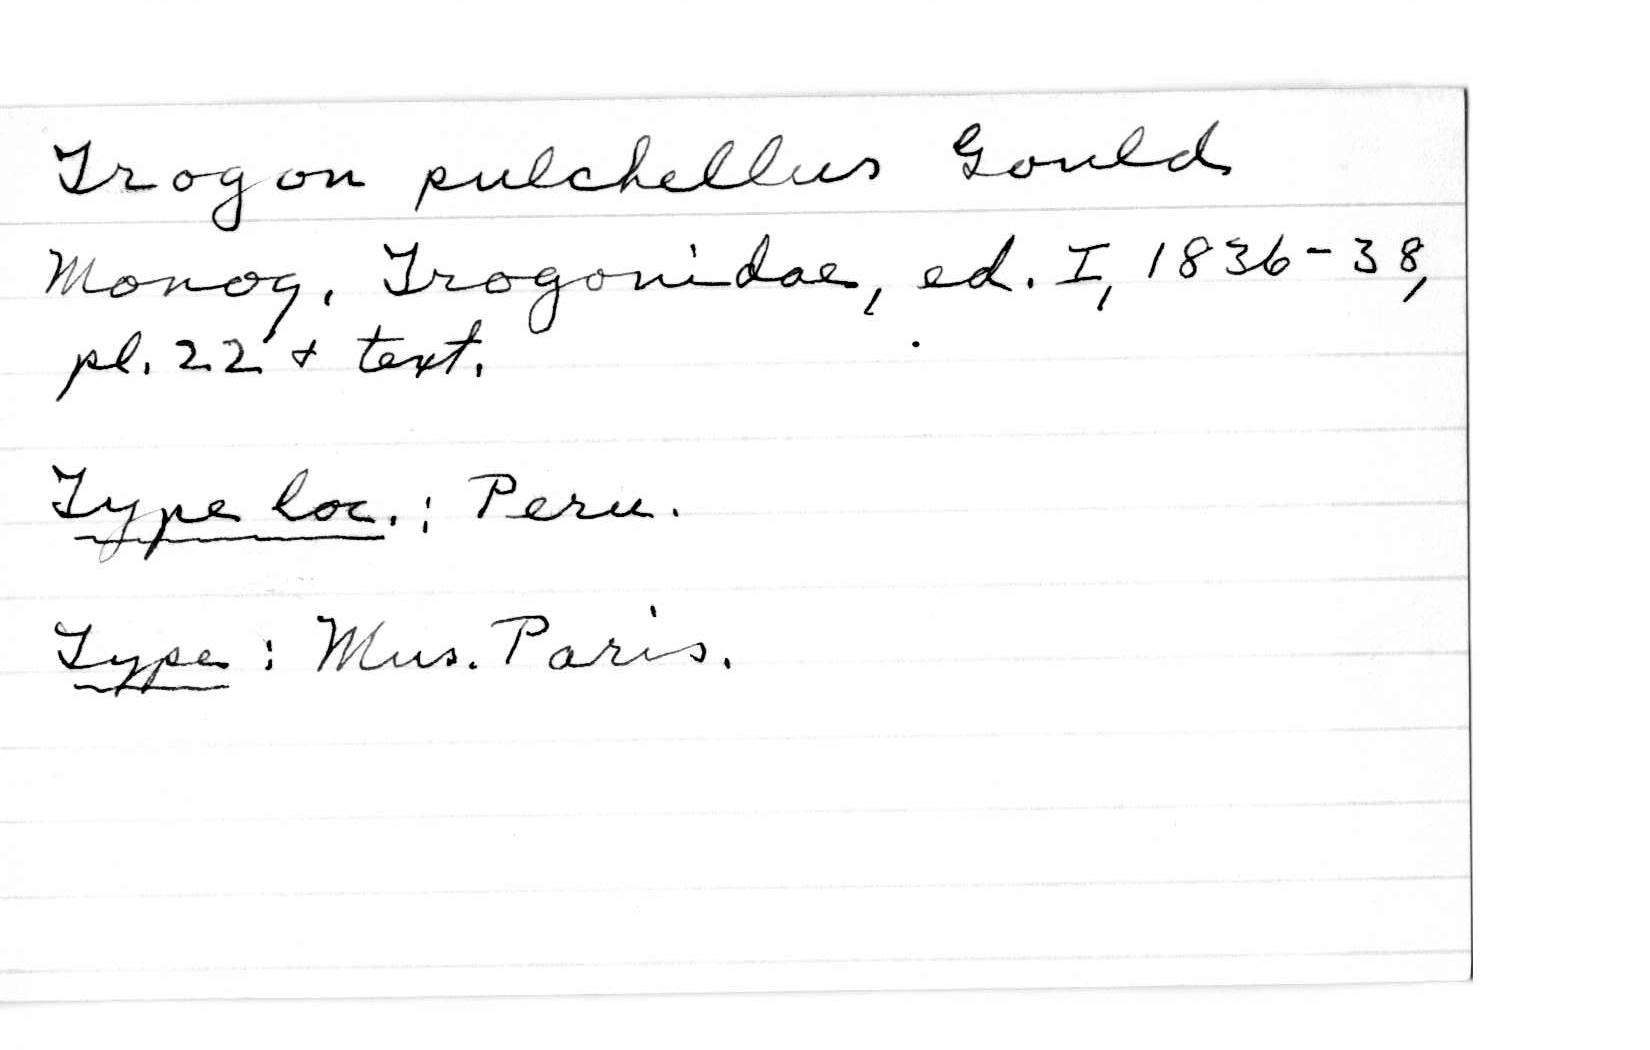 Trogon pulchellus Gould
Monog. Trogonidae, ed. I, 1836-38,
pl. 22 & text.
Type loc.: Peru.
Type: Mus. Paris.